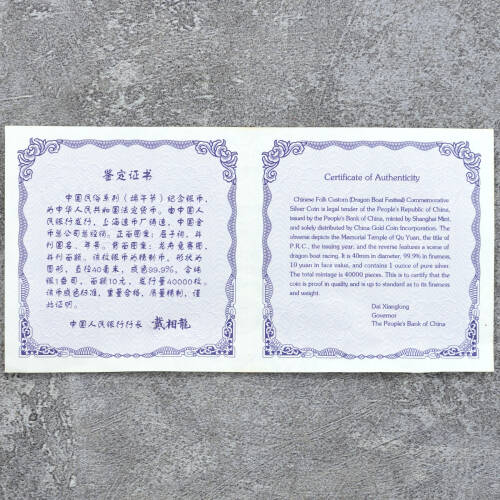 鉴定证书
中国民俗系列（端午节）纪念银币，
为中华人民共和国法定货币。由中国人
民银行发行，上海造币厂铸造，中国金
币总公司总经销。正面图案：屈子祠，并
刊国名、年号。背面图案：龙舟竞赛图，
并刊面额。该枚银币为精制币，形状为
圆形，直径40毫米，成色99.9%，含纯
银1盎司，面额10元，发行量40000枚。
该币成色标准，重量合格，质量精制，谨
此证明。
中国人民银行行长 戴相龍
Certificate of Authenticity
Chinese Folk Custom (Dragon Boat Festival) Commemorative
Silver Coin is legal tender of the People's Republic of China,
issued by the People's Bank of China, minted by Shanghai Mint,
and solely distributed by China Gold Coin Incorporation. The
obverse depicts the Memorial Temple of Qu Yuan, the title of
P.R.C., the issuing year, and the reverse features a scene of
dragon boat racing. It is 40mm in diameter, 99.9% in fineness,
10 yuan in face value, and contains 1 ounce of pure silver.
The total mintage is 40000 pieces. This is to certify that the
coin is proof in quality, and is up to standard as to its fineness
and weight.
Dai Xianglong
Governor
The People's Bank of China